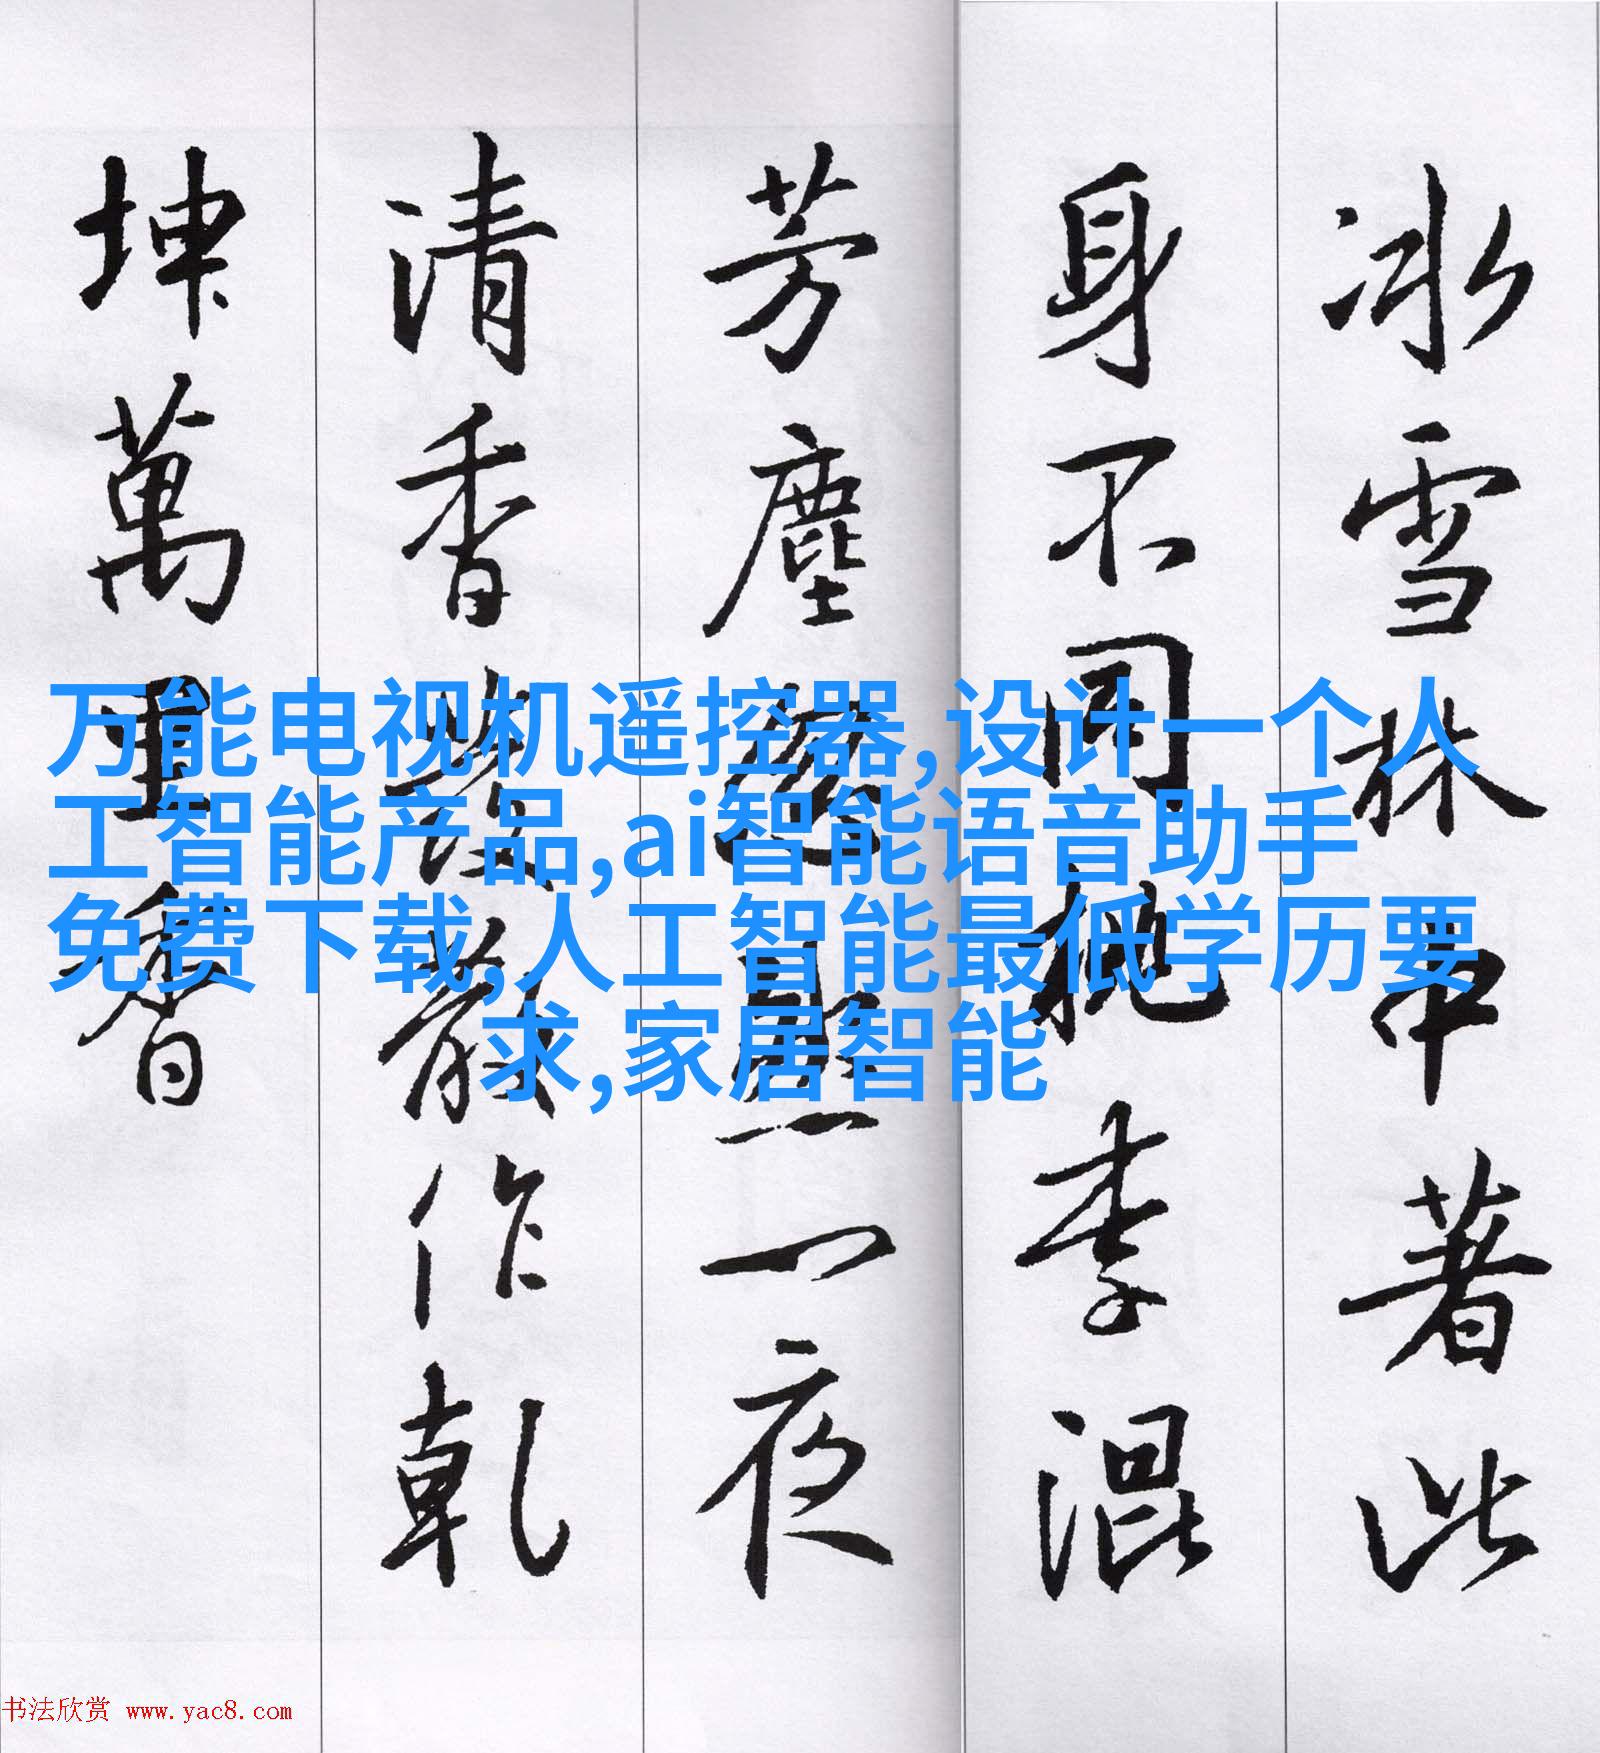 冰雪林中著此
身不同桃李混
芳塵忽然一夜
清香發散作乾
坤萬里香
万能电视机遥控器,设计一个人
工智能产品,ai智能语音助手
免费下载,人工智能最低学历要
求,家居智能
书法欣赏 www.yac8.com